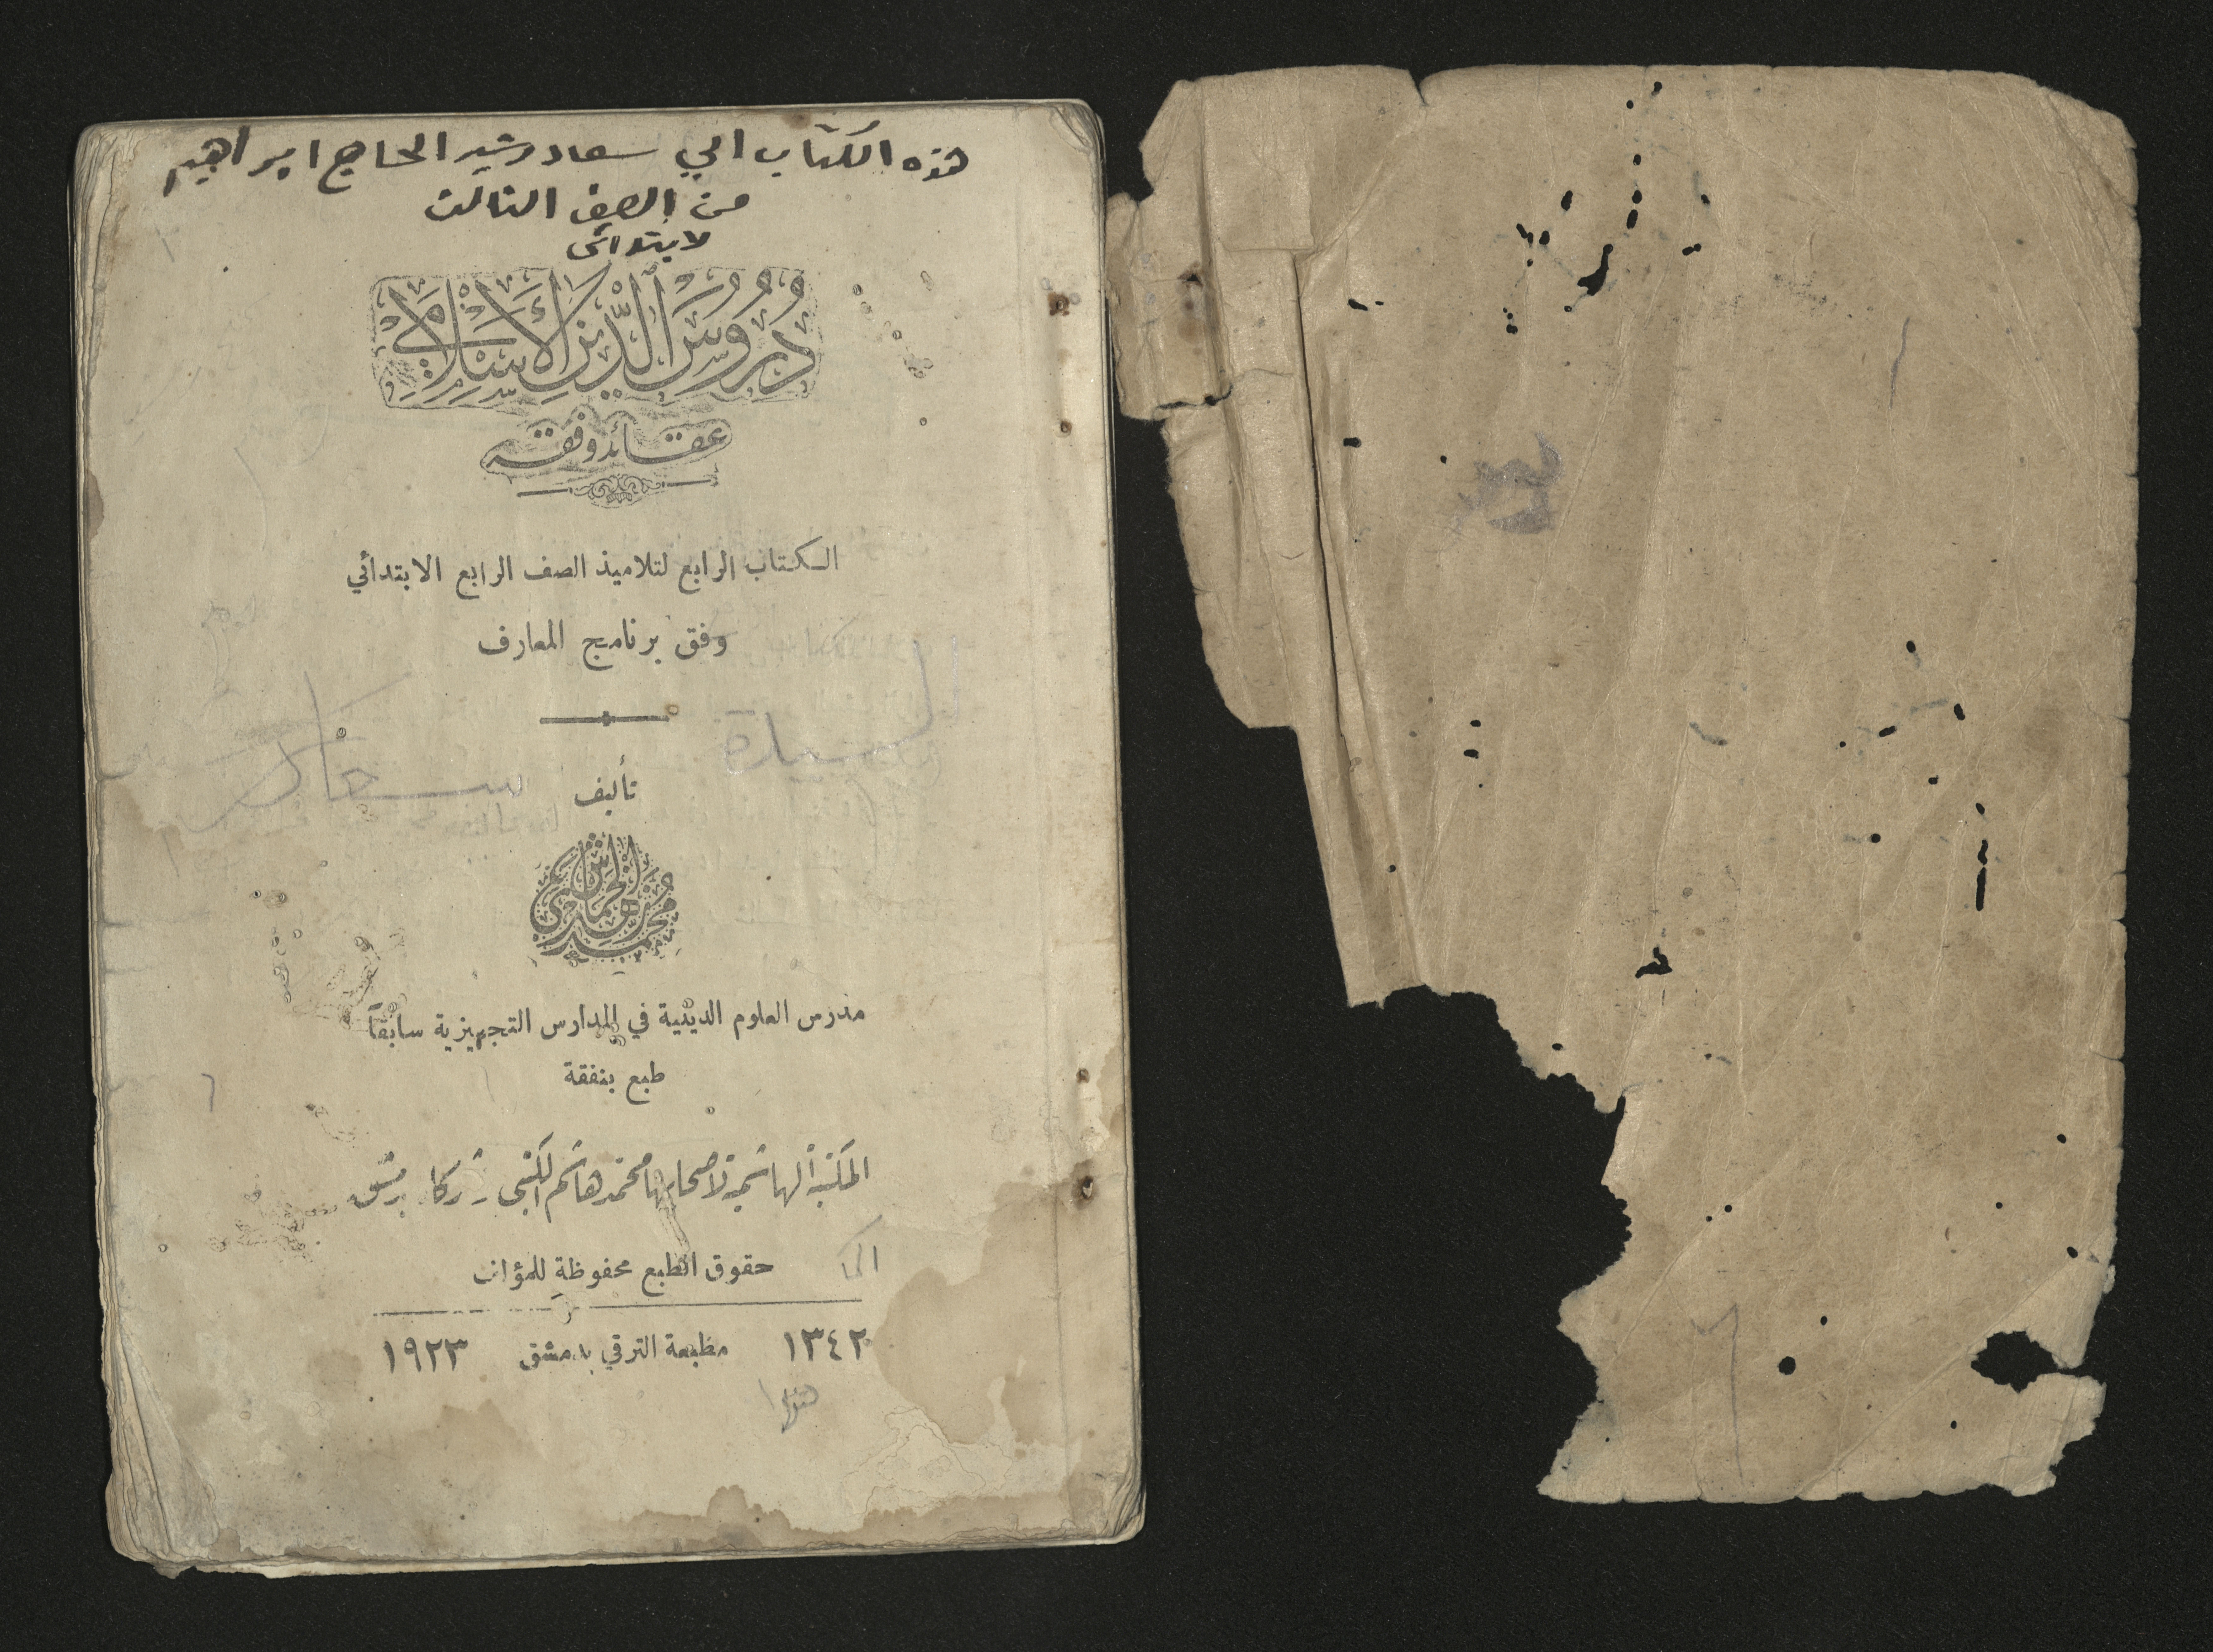 هذه الكتاب الى سعاد رشيد الحاج ابراهيم
من الصف الثالث
لابتدائى
دُرُوسُ الدِّينِ الْإِسْلَامِي
عقائد وفقه
الكتاب الرابع لتلاميذ الصف الرابع الابتدائي
وفق برنامج المعارف
السيدة
سعاد
تأليف
محمد زهدي الخماش
مدرس العلوم الدينية في المدارس التجهيزية سابقاً
طبع بنفقة
المكتبة الهاشمية لاصحابها محمد هاشم الكتبي وشركاه بدمشق
حقوق الطبع محفوظة للمؤلف
١٣٤٢ مطبعة الترقي بدمشق ١٩٢٣